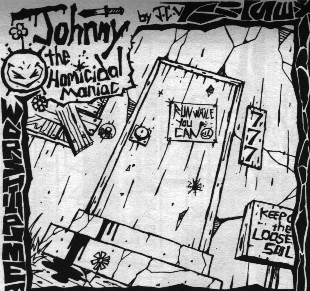 Johnny
by J.C.V
the
Homicidal
Maniac
RUN WHILE
YOU
CAN
777
KEEP
the
LOOSE
SOIL